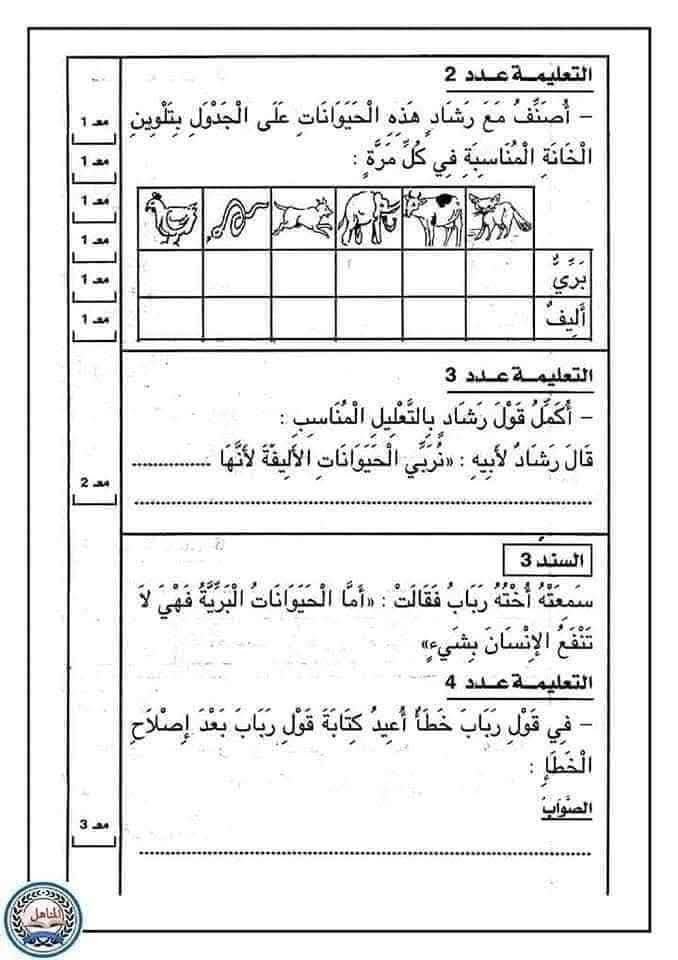 التعليمــة عــدد 2
– أُصَنِّفُ مَعَ رَشَادٍ هَذِهِ الْحَيَوَانَاتِ عَلَى الْجَدْوَلِ بِتَلْوِينِ
الْخَانَةِ الْمُنَاسِبَةِ فِي كُلِّ مَرَّةٍ :
معـ 1
معـ 1
معـ 1
معـ 1
معـ 1
معـ 1
بَرِّيٌّ
أَلِيفٌ
التعليمــة عــدد 3
– أُكَمِّلُ قَوْلَ رَشَادٍ بِالتَّعْلِيلِ الْمُنَاسِبِ :
قَالَ رَشَادٌ لأَبِيهِ : «نُرَبِّي الْحَيَوَانَاتِ الأَلِيفَةَ لأَنَّهَا ..............
معـ 2
السند 3
سَمِعَتْهُ أُخْتُهُ رَبَابُ فَقَالَتْ : «أَمَّا الْحَيَوَانَاتُ الْبَرِّيَّةُ فَهْيَ لاَ
تَنْفَعُ الإِنْسَانَ بِشَيْءٍ»
التعليمــة عــدد 4
– فِي قَوْلِ رَبَابَ خَطَأٌ أُعِيدُ كِتَابَةَ قَوْلِ رَبَابَ بَعْدَ إِصْلَاحِ
الْخَطَإِ :
الصَّوَابَ
معـ 3
المناهل